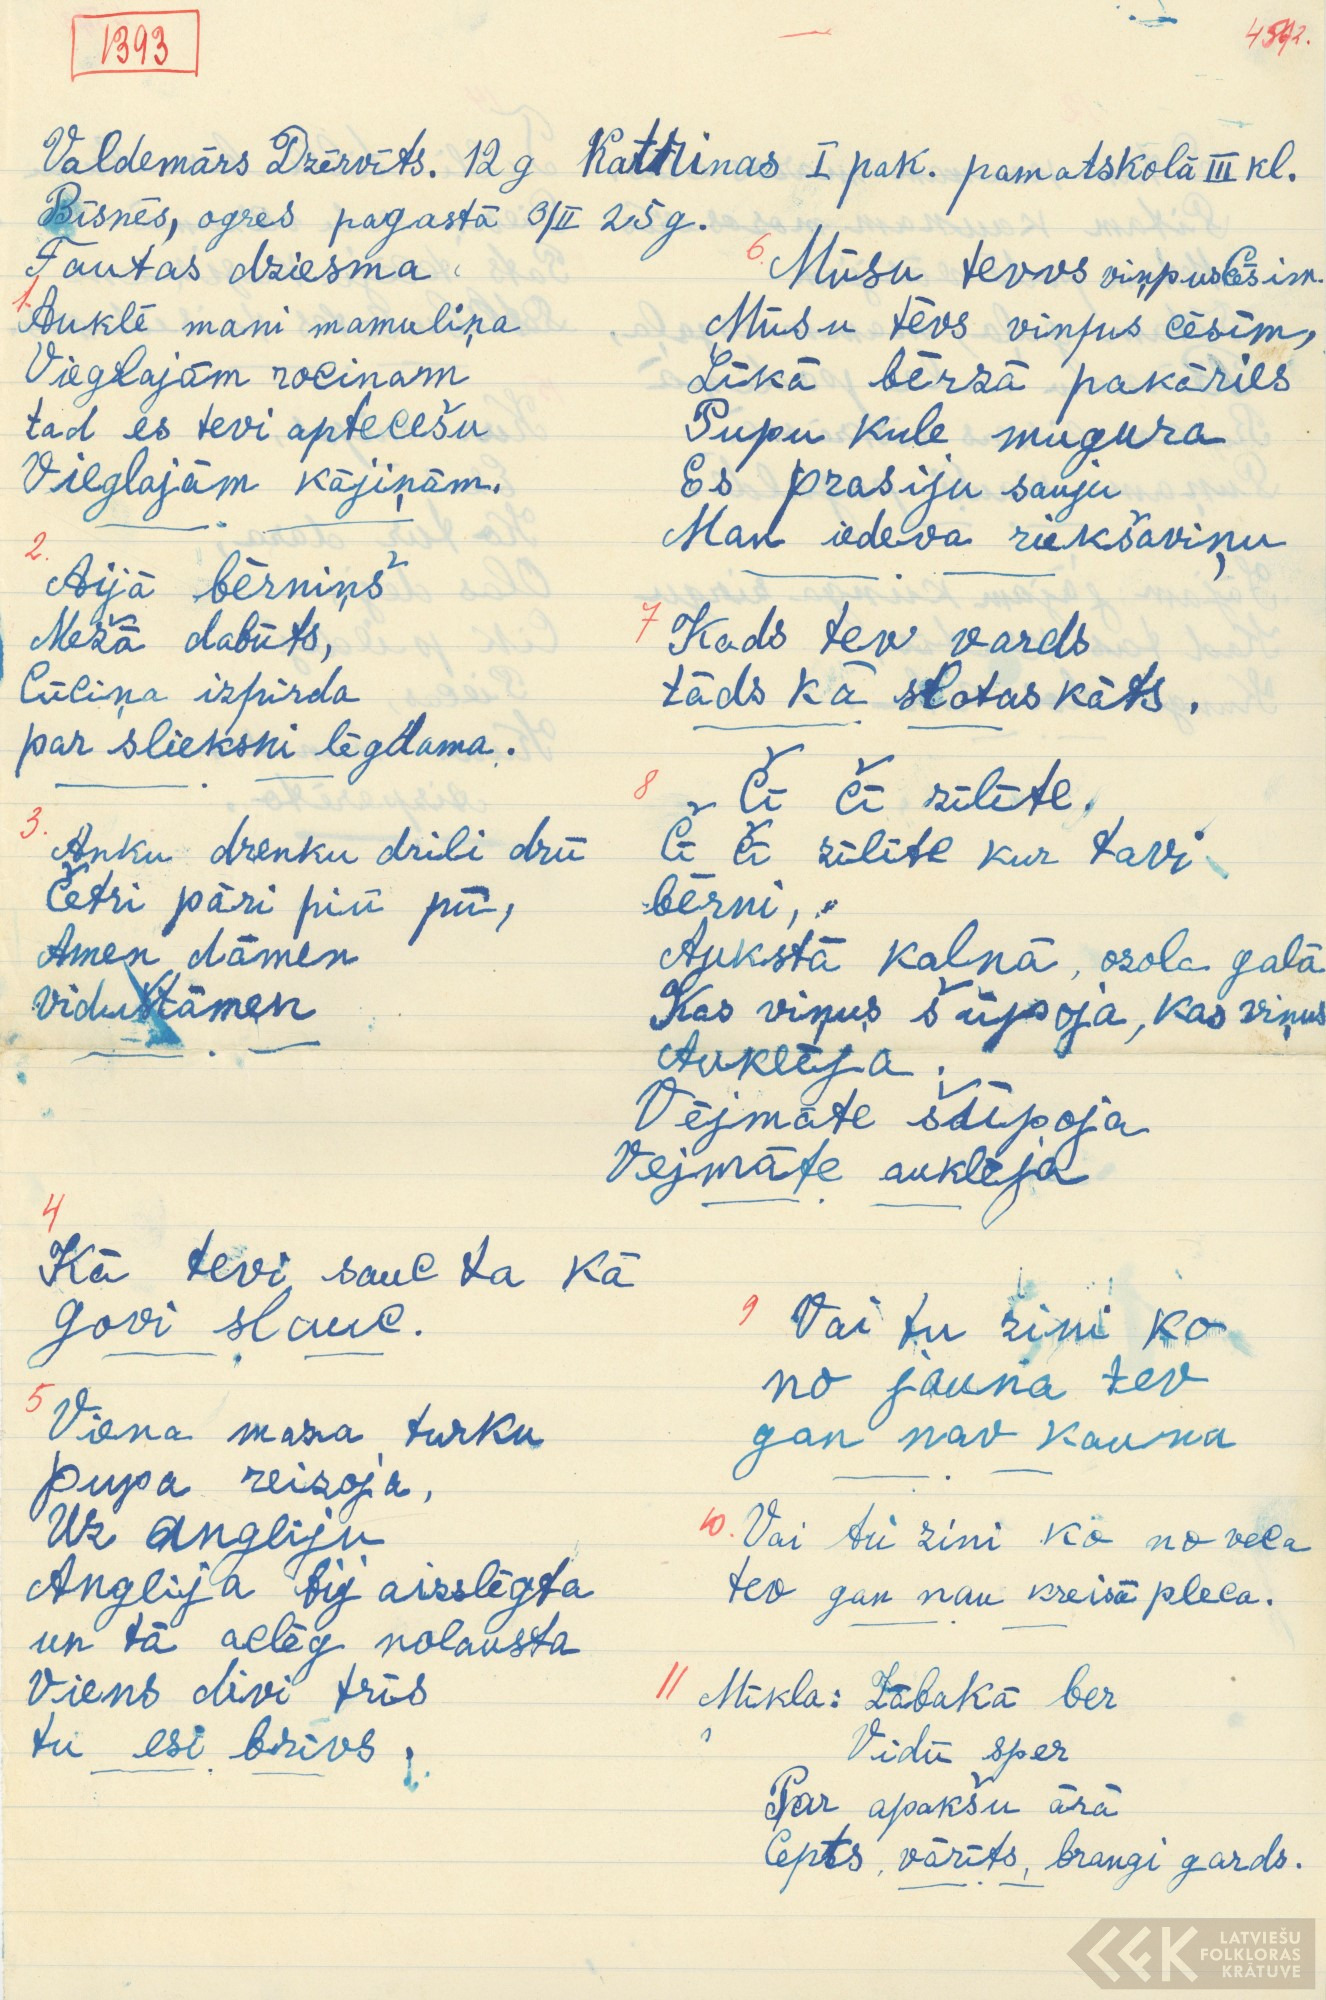 1393
4592.
Valdemārs Dzērvīts. 12 g Kattrinas I pak. pamatskolā III kl.
Bīsnēs, ogres pagastā 3/II 25g.
Tautas dziesma
1.
Auklē mani mamuliņa
Vieglajām rociņam
tad es tevi aptecešu
Vieglajām kājiņām.
2.
Aijā bērniņš
Mežā dabūts,
Cūciņa izpirda
par slieksni lēgdama.
3.
Anku drenku drili drū
Četri pāri piū pū,
Amen dāmen
vidustāmen
4
Kā tevi sauc ta kā
govi slauc.
5
Viena maza turku
pupa reizoja,
Uz angliju
Anglija bij aizslēgta
un tā aclēg nolausta
Viens divi trīs
tu esi brīvs,
6.
Mūsu tevvs viņpus Cēsim.
Mūsu tēvs vinpus cēsīm,
Līkā bērzā pakāries
Pupu kule mugura
Es prasiju sauju
Man iedeva riekšaviņu
7
Kads tev vards
tāds kā slotas kāts.
8
Či či zīlīte.
Či či zīlīte kur tavi
bērni,
Aukstā kalnā, ozola galā
Kas viņus šūpoja, kas viņus
Auklēja.
Vējmāte šūpoja
Vejmāte auklēja
9
Vai tu zini ko
no jauna tev
gan nav kauna
10.
Vai tu zini ko no veca
tev gan nau kreisā pleca.
11
Mīkla: Zābakā ber
Vidū sper
Par apakšu ārā
Cepts, vārīts, brangi gards.
LATVIEŠU
FOLKLORAS
KRĀTUVE